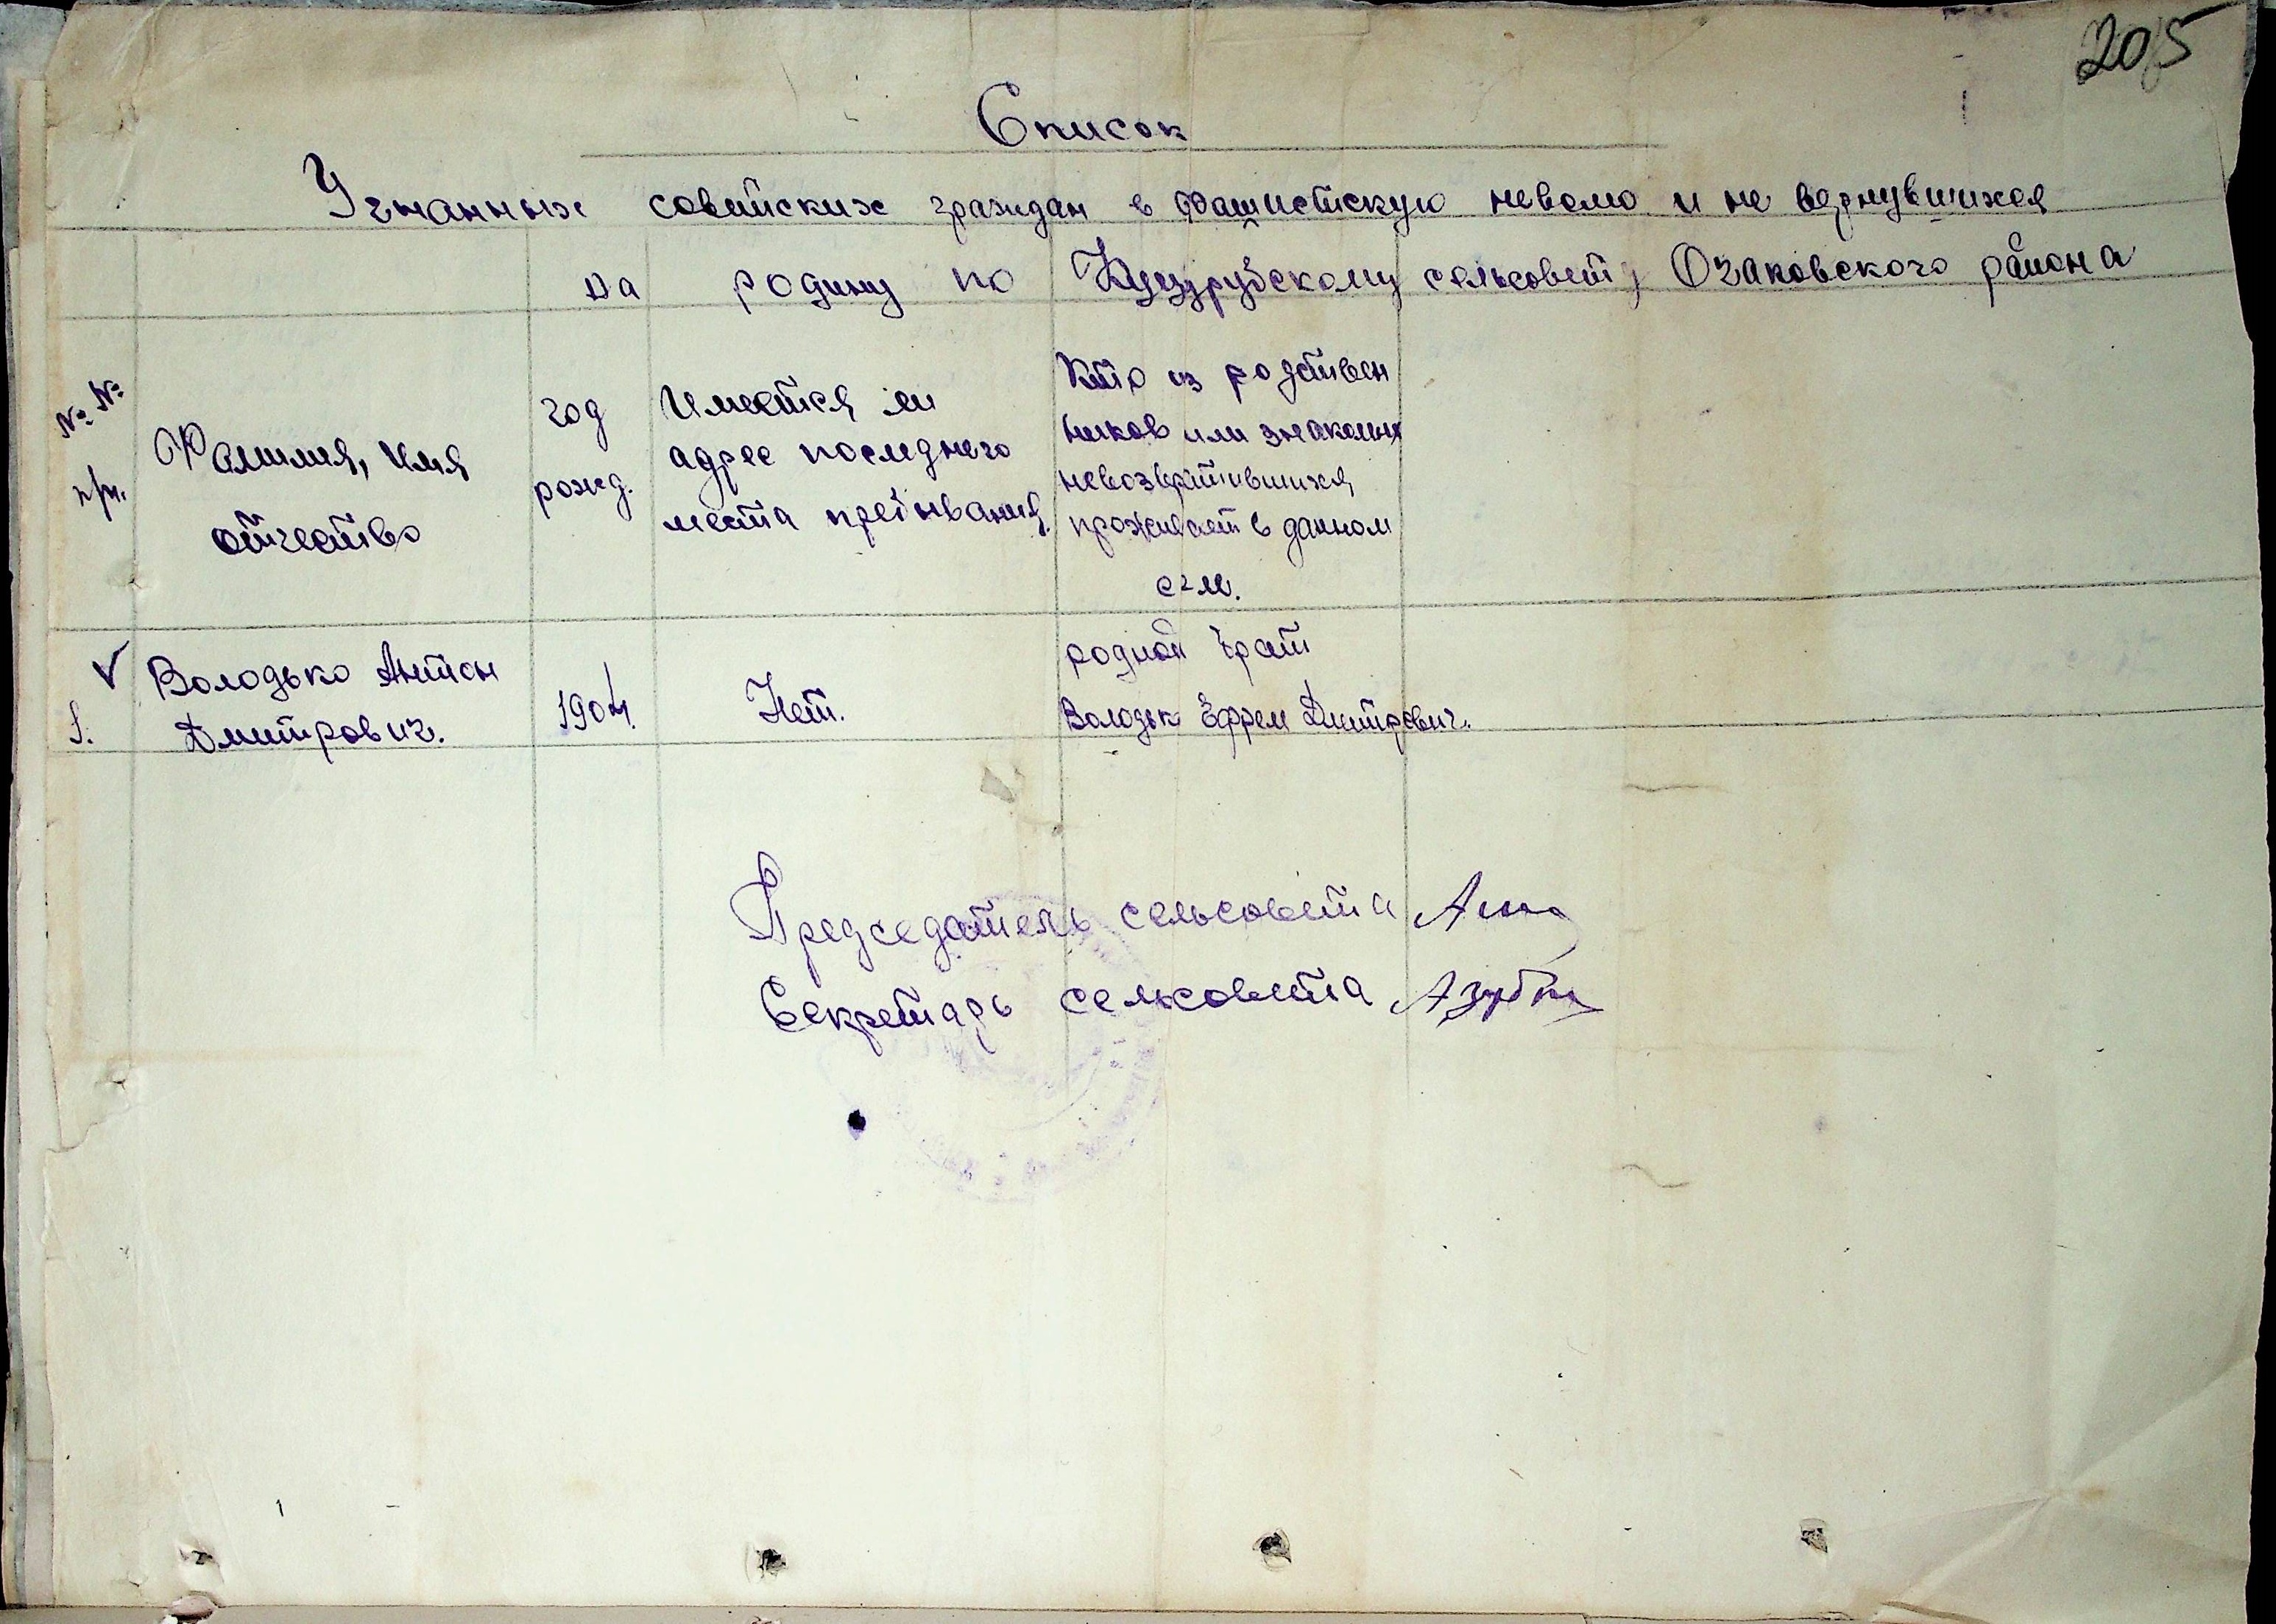 205
Список
Угнанных советских граждан в фашистскую неволю и не вернувшихся
на родину по Куцурубскому сельсовету Очаковского района
№ №
п/п.
Фамилия, имя
отчество
год
рожд.
Имеется ли
адрес последнего
места пребывания.
Кто из родствен
ников или знакомых
невозвратившихся
проживает в данном
селе.
1.
Володько Антон
Дмитрович.
1904.
Нет.
родной брат
Володьк Ефрем Дмитрович.
Председатель сельсовета
Секретарь сельсовета